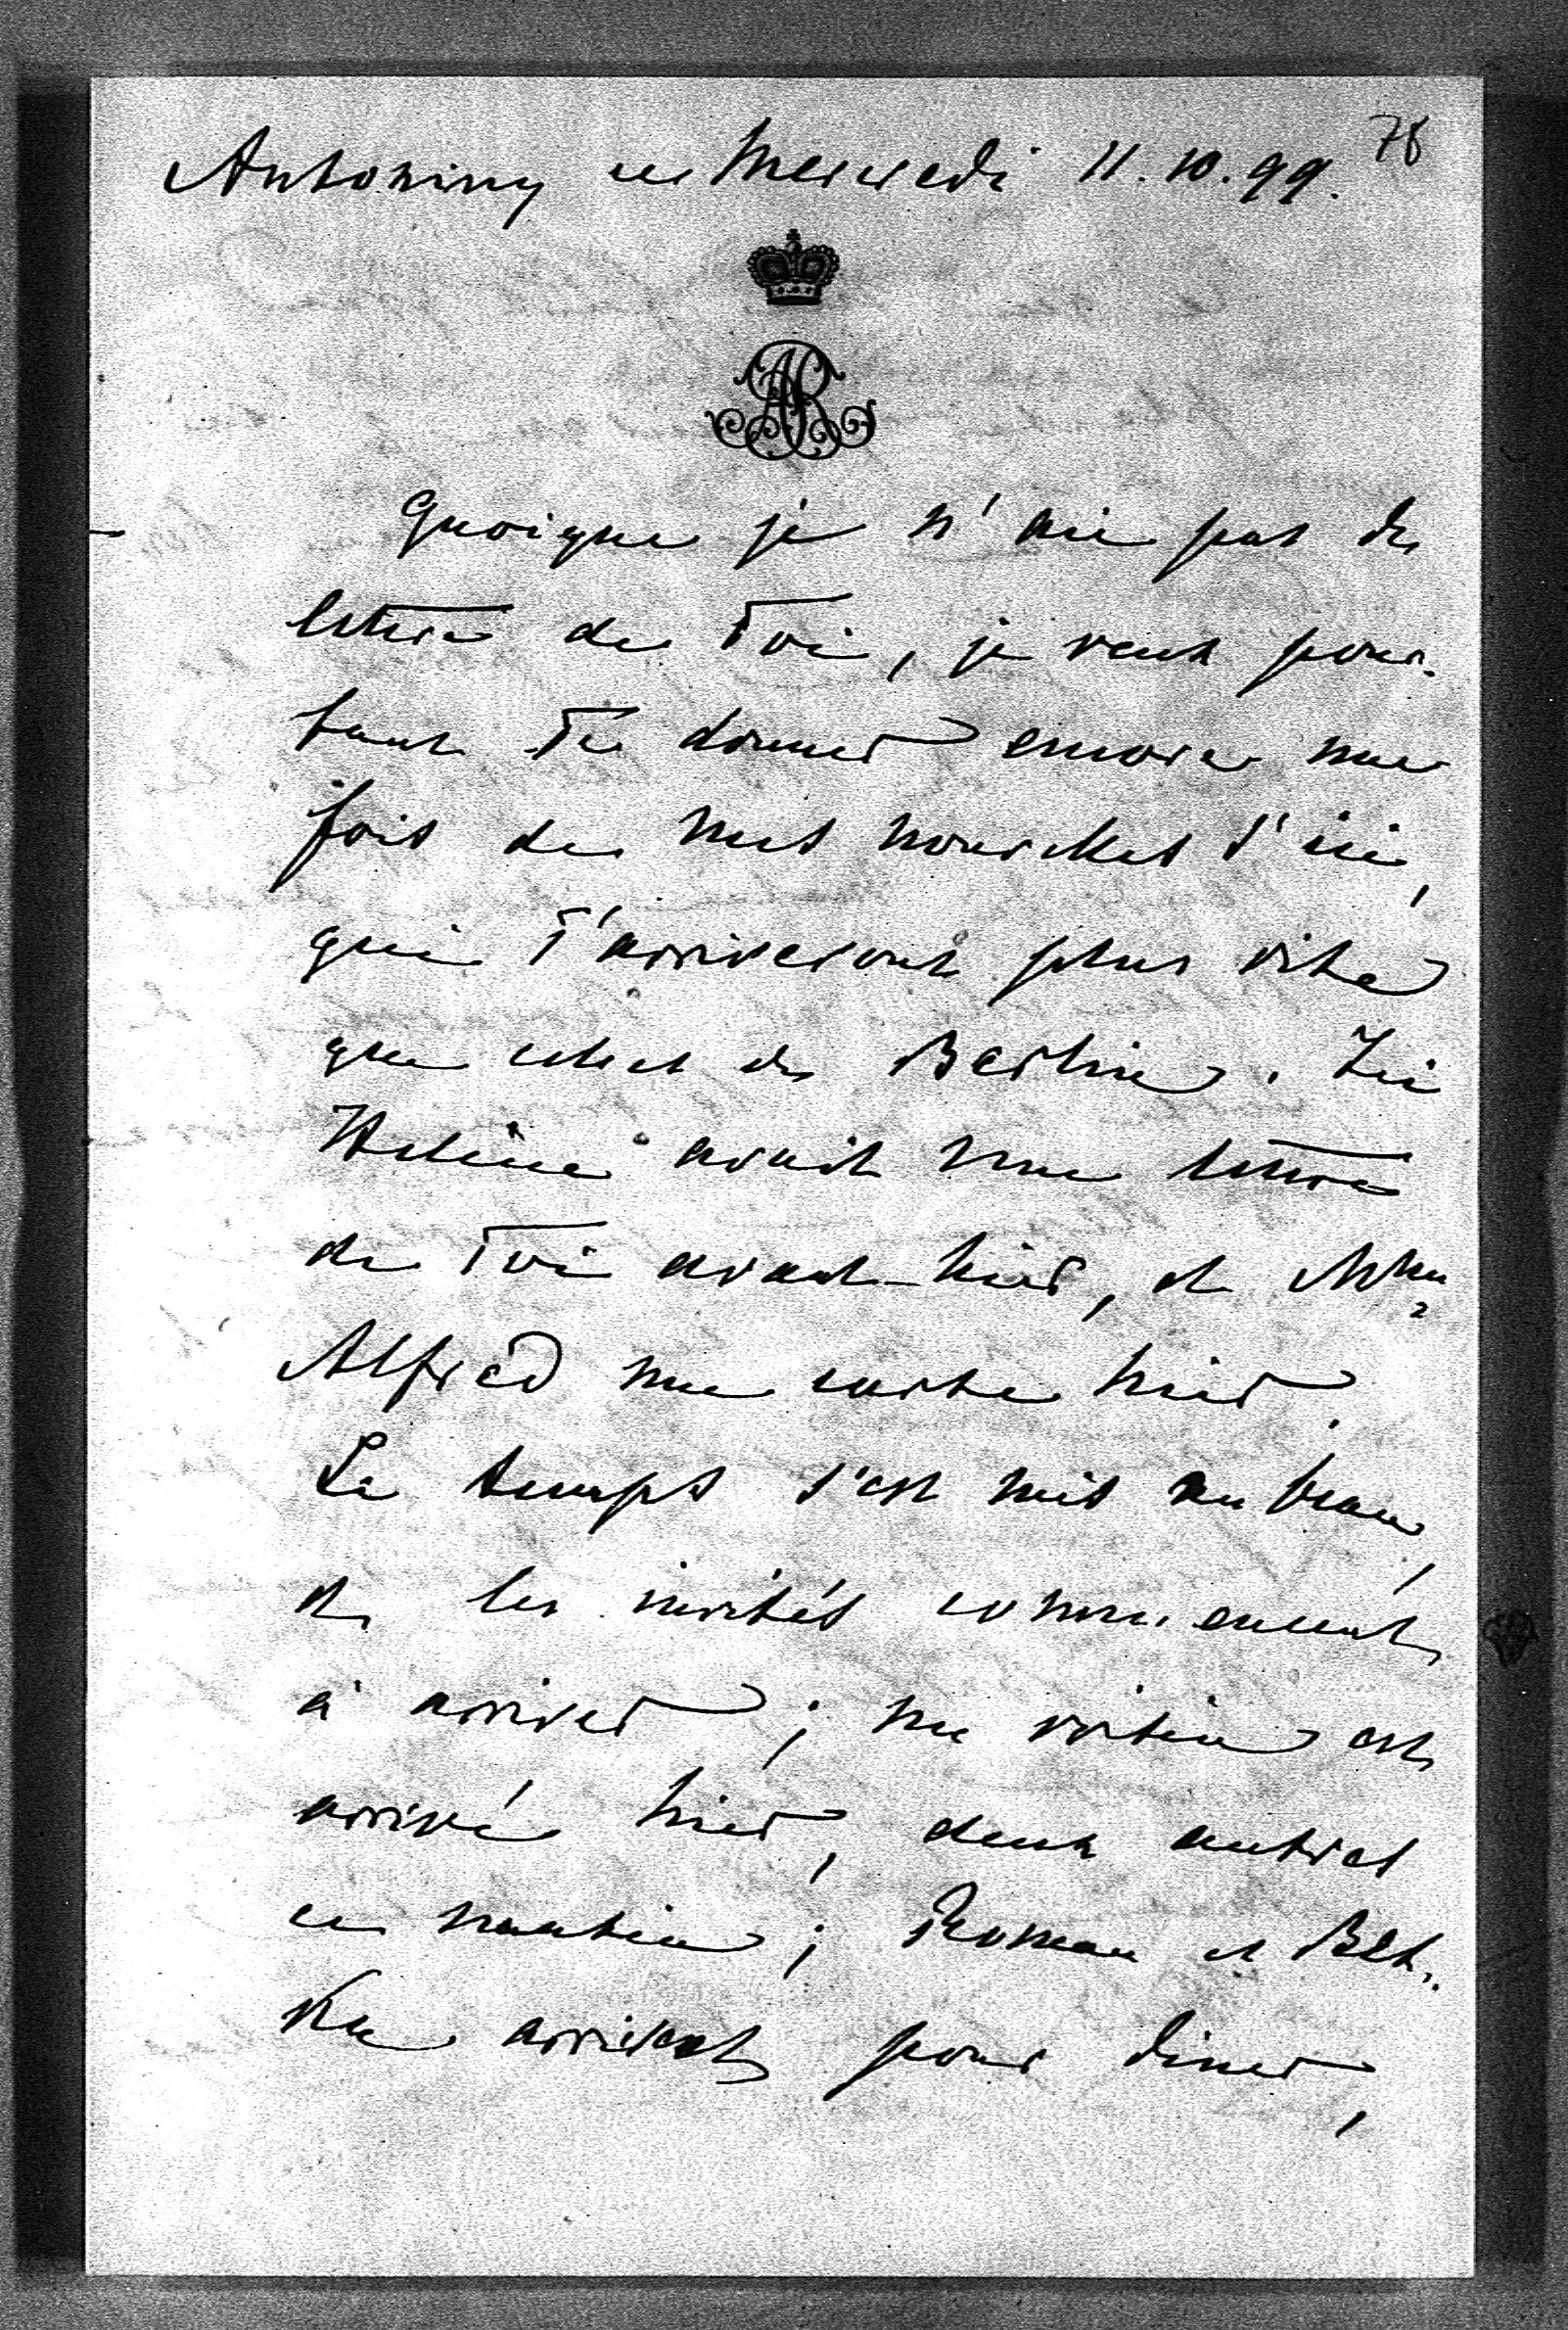 78
Antoniny ce Mercredi 11.10.99.
AR
Quoique je n'aie pas de
lettre de Toi, je veux pour-
tant Te donner encore une
fois de mes nouvelles d'ici,
qui T'arriveront plus vite
que celles de Berlin. Ici
Hélène avait une lettre
de Toi avant-hier, et Mme
Alfred une carte hier.
Le temps s'est mis au beau,
et les invités commencent
à arriver; un voisin est
arrivé hier, deux autres
ce matin; Roman et Bet-
ka arrivent pour dîner,